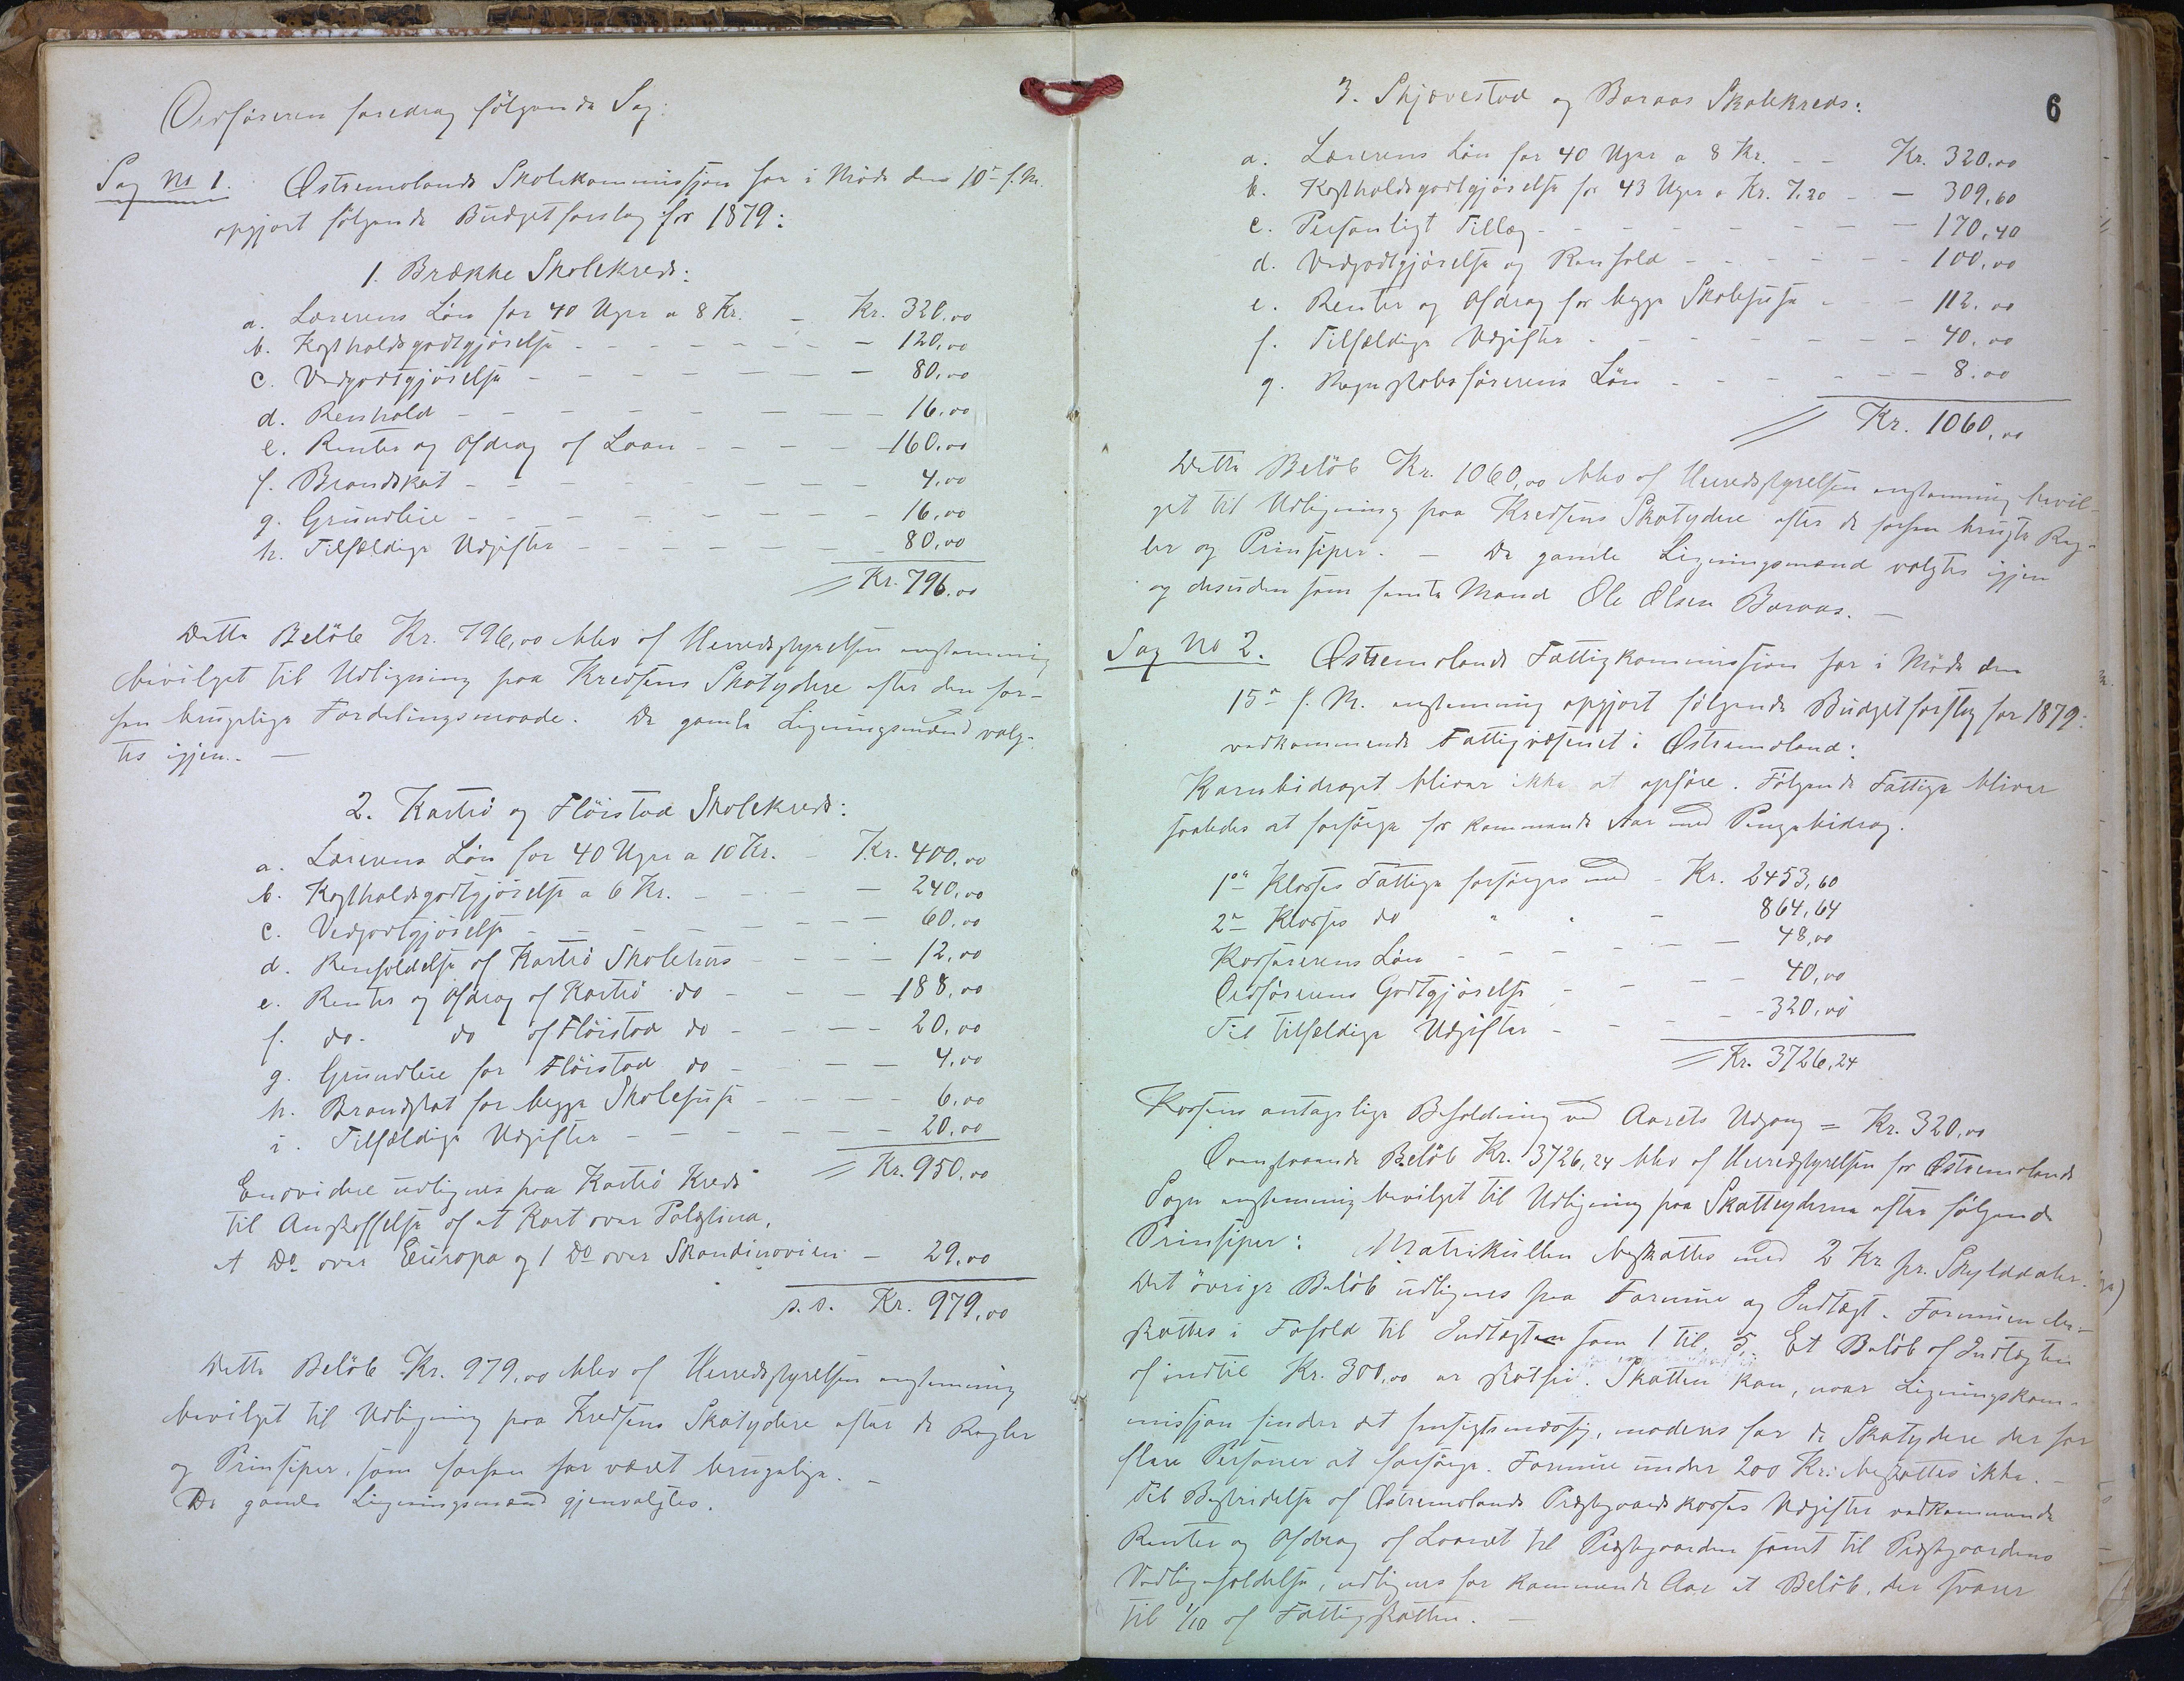 Ordføreren foredrog følgende Sag:
Sag No 1. Østremolands Skolekommission har i Møde den 10de f. M.
opgjort følgende Budgetforslag for 1879:
1. Brække Skolekreds:
a. Lærerens Løn for 40 Uger a 8 Kr. – Kr. 320,00
b. Kostholdsgodtgjørelse – 120,00
c. Vedgodtgjørelse – 80,00
d. Renhold – 16,00
e. Renter og Afdrag af Laan – 160,00
f. Brandskat – 4,00
g. Grundleie – 16,00
h. Tilfældige Udgifter – 80,00
Kr. 796,00
Dette Beløb Kr. 796,00 blev af Herredsstyrelsen enstemmig
bevilget til Udligning paa Kredsens Skatydere efter den for-
hen brugelige Fordelingsmaade. De gamle Ligningsmænd valg-
tes igjen. –
2. Kaströ og Fløistad Skolekreds:
a. Lærerens Løn for 40 Uger a 10 Kr. – Kr. 400,00
b. Kostholdsgodtgjørelse a 6 Kr. – 240,00
c. Vedgodtgjørelse – 60,00
d. Renholdelse af Kaströ Skolehus – 12,00
e. Renter og Afdrag af Kaströ do – 188,00
f. do. do af Fløistad do – 20,00
g. Grundleie for Fløistad do – 4,00
h. Brandskat for begge Skolehuse – 6,00
i. Tilfældige Udgifter – 20,00
Kr. 950,00
Endvidere udlignes paa Kaströ Kreds
til Anskaffelse af et Kart over Palæstina,
et Do over Europa og 1 Do over Skandinavien – 29,00
s. s. Kr. 979,00
Dette Beløb Kr. 979,00 blev af Herredsstyrelsen enstemmig
bevilget til Udligning paa Kredsens Skatydere efter de Regler
og Prinsiper, som forhen har været brugelige. –
De gamle Ligningsmænd gjenvalgtes.
6
3. Skjævestad og Baraas Skolekreds:
a. Lærerens Løn for 40 Uger a 8 Kr. – – Kr. 320,00
b. Kostholdsgodtgjørelse for 43 Uger a Kr. 7,20 – – 309,60
c. Personligt Tillæg – 170,40
d. Vedgodtgjørelse og Renhold – 100,00
e. Renter og Afdrag for begge Skolehuse – 112,00
f. Tilfældige Udgifter – 40,00
g. Regnskabsførerens Løn – 8,00
Kr. 1060,00
Dette Beløb Kr. 1060,00 blev af Herredsstyrelsen enstemmig bevil-
get til Udligning paa Kredsens Skatydere efter de forhen brugte Reg-
ler og Prinsiper. – De gamle Ligningsmænd valgtes igjen
og desuden som femte Mand Ole Olsen Baraas. –
Sag No 2. Østremolands Fattigkommission har i Møde den
15de f. M. enstemmig opgjort følgende Budgetforslag for 1879:
vedkommende Fattigvæsenet i Østremoland:
Kornbidraget bliver ikke at opføre. Følgende Fattige bliver
saaledes at forsørge for kommende Aar med Pengebidrag.
1ste Klasses Fattige forsørges med – Kr. 2453,60
2den Klasses do " " – 864,64
Kassererens Løn – 48,00
Ordførerens Godtgjørelse – 40,00
Til tilfældige Udgifter – 320,00
Kr. 3726,24
Kassens antagelige Beholdning ved Aarets Udgang = Kr. 320,00
Ovenstaaende Beløb Kr. 3726,24 blev af Herredsstyrelsen for Østremolands
Sogn enstemmig bevilget til Udligning paa Skatteyderne efter følgende
Prinsiper: Matrikullen beskattes med 2 Kr. pr. Skylddaler.
Det øvrige Beløb udlignes paa Formue og Indtægt. Formuen be-
skattes i Forhold til Indtægten som 1 til 5. Et Beløb af Indtægten
af indtil Kr. 300,00 er skatfri. Skatten kan, naar Ligningskom-
missjon finder det hensigtsmæssig, moderes for de Skatydere der har
flere Personer at forsørge. Formue under 200 Kr. beskattes ikke. –
Til Bestridelse af Østremolands Præstegaards kasses Udgifter vedkommende
Renter og Afdrag af Laanet til Præstegaarden samt til Præstegaardens
Vedligeholdelse, udlignes for kommende Aar et Beløb, der svarer
til 1/10 af Fattigskatten. –